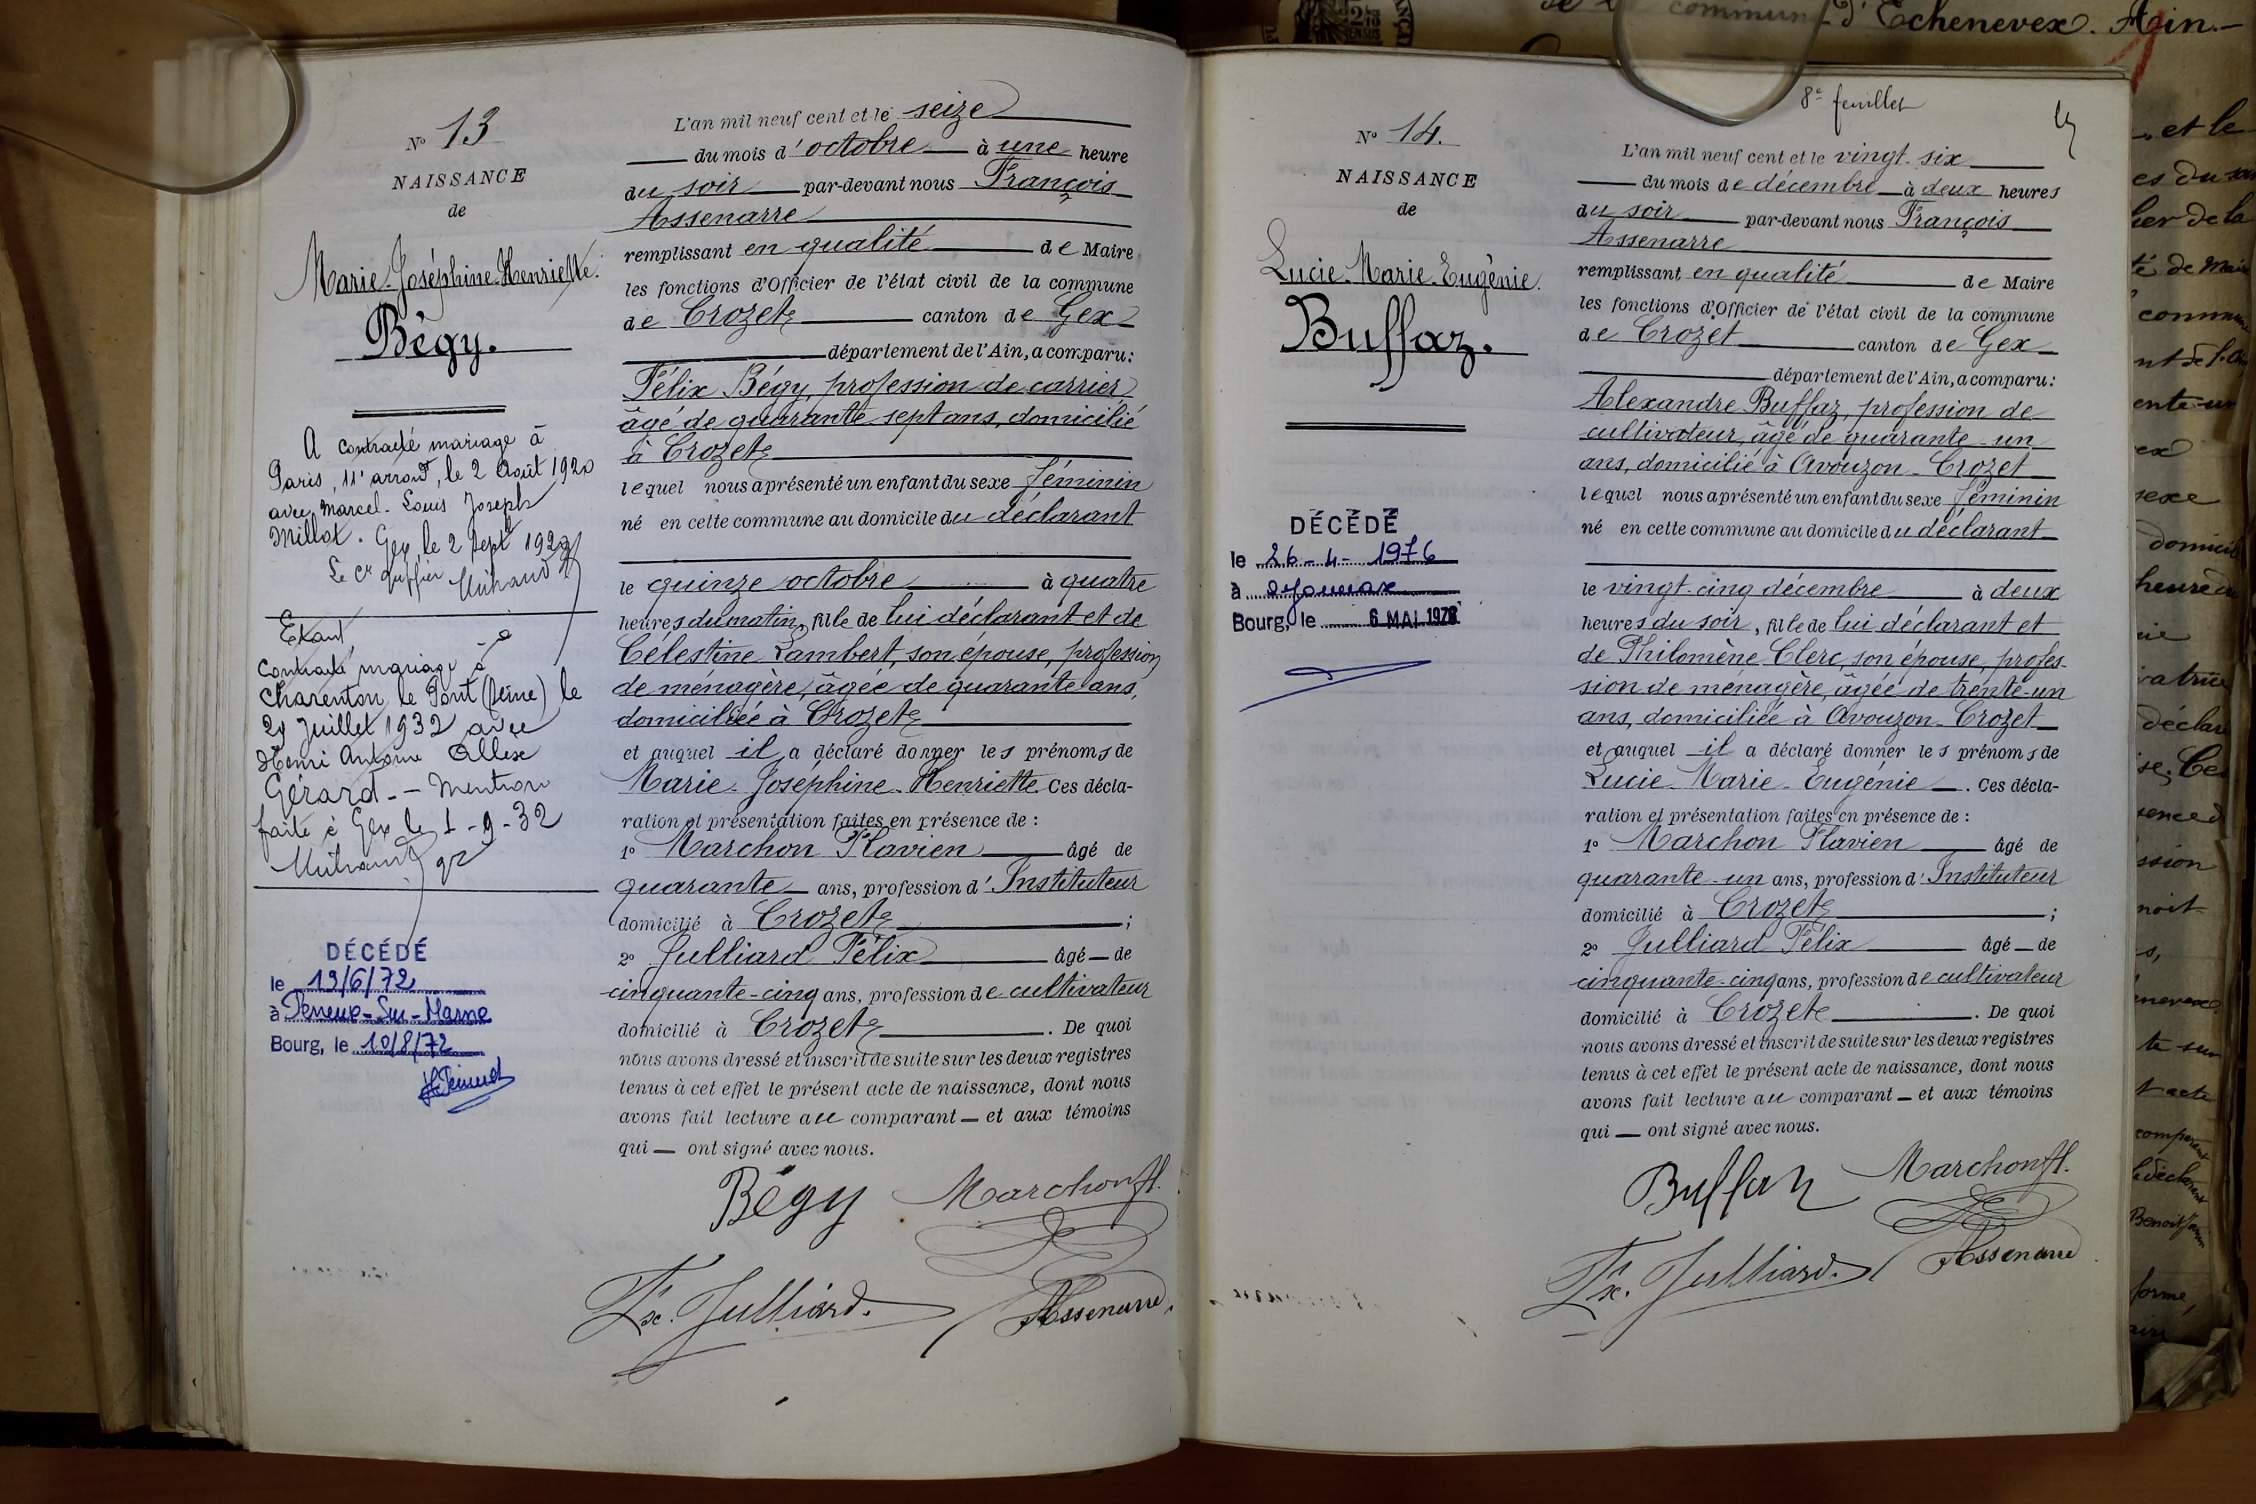 N° 13
NAISSANCE
de
Marie-Joséphine-Henriette.
Bégy.
A contracté mariage à
Paris, 11e arrondt, le 2 Août 1920
avec Marcel-Louis Joseph
Millot. Gex, le 2 Sept 1920
Le cr greffier
contracté mariage à
Charenton le Pont (Seine) le
29 Juillet 1932 avec
Henri Antoine
Gérard. - Mention
faite à Gex le 1-9-32
DÉCÉDÉ
le 19/6/72
à Perreux-Sur-Marne
Bourg, le 10/8/72
L'an mil neuf cent et le seize
du mois d'octobre à une heure
du soir par-devant nous François
Assenarre
remplissant en qualité de Maire
les fonctions d'Officier de l'état civil de la commune
de Crozet canton de Gex
département de l'Ain, a comparu:
Félix Bégy, profession de carrier
âgé de quarante sept ans, domicilié
à Crozet
lequel nous a présenté un enfant du sexe féminin
né en cette commune au domicile du déclarant
le quinze octobre à quatre
heures du matin, fille de lui déclarant et de
Célestine Lambert, son épouse, profession
de ménagère, âgée de quarante ans,
domiciliée à Crozet
et auquel il a déclaré donner les prénoms de
Marie-Josephine-Henriette Ces décla-
ration et présentation faites en présence de :
1° Marchon Flavien âgé de
quarante ans, profession d'Instituteur
domicilié à Crozet ;
2° Julliard Félix âgé de
cinquante-cinq ans, profession de cultivateur
domicilié à Crozet . De quoi
nous avons dressé et inscrit de suite sur les deux registres
tenus à cet effet le présent acte de naissance, dont nous
avons fait lecture au comparant et aux témoins
qui ont signé avec nous.
Bégy Marchon fl.
Fx. Julliard. Assenarre
8e feuillet
N° 14.
NAISSANCE
de
Lucie-Marie-Eugénie.
Buffaz.
DÉCÉDÉ
le 26-4-1976
à Oyonnax
Bourg, le 6 MAI 1976
L'an mil neuf cent et le vingt-six
du mois de décembre à deux heures
du soir par-devant nous François
Assenarre
remplissant en qualité de Maire
les fonctions d'Officier de l'état civil de la commune
de Crozet canton de Gex
département de l'Ain, a comparu:
Alexandre Buffaz, profession de
cultivateur, âgé de quarante-un
ans, domicilié à Avouzon-Crozet
lequel nous a présenté un enfant du sexe féminin
né en cette commune au domicile du déclarant
le vingt-cinq décembre à deux
heures du soir, fille de lui déclarant et
de Philomène Clerc, son épouse, profes-
sion de ménagère, âgée de trente-un
ans, domiciliée à Avouzon-Crozet
et auquel il a déclaré donner les prénoms de
Lucie-Marie-Eugénie . Ces décla-
ration et présentation faites en présence de :
1° Marchon Flavien âgé de
quarante-un ans, profession d'Instituteur
domicilié à Crozet ;
2° Julliard Félix âgé de
cinquante-cinq ans, profession de cultivateur
domicilié à Crozet . De quoi
nous avons dressé et inscrit de suite sur les deux registres
tenus à cet effet le présent acte de naissance, dont nous
avons fait lecture au comparant et aux témoins
qui ont signé avec nous.
Buffaz Marchon fl.
Fx. Julliard. Assenarre
commune d'Echenevex. Ain.-
et le